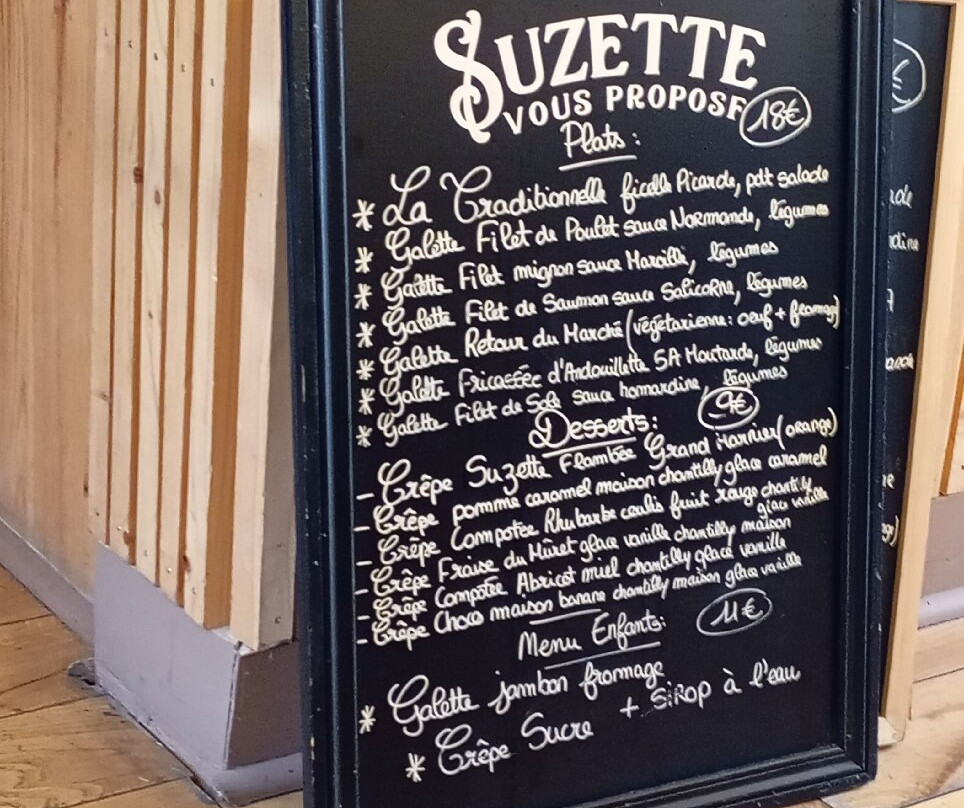 SUZETTE
VOUS PROPOSE 18€
Plats :
* La Traditionnelle ficelle Picarde, pdt salade
* Galette Filet de Poulet sauce Normande, légumes
* Galette Filet mignon sauce Maroille, légumes
* Galette Filet de Saumon sauce Salicorne, légumes
* Galette Retour du Marché (végétarienne: oeuf + fromage)
* Galette Fricassée d'Andouillette 5A Moutarde, légumes
* Galette Filet de Sole sauce homardine, légumes
Desserts: 9€
- Crêpe Suzette Flambée Grand Marnier (orange)
- Crêpe pomme caramel maison chantilly glace caramel
- Crêpe Compotée Rhubarbe coulis fruit rouge chantilly
glace vanille
- Crêpe Fraise du Mûret glace vanille chantilly maison
- Crêpe Compotée Abricot miel chantilly glace vanille
- Crêpe Choco maison banane chantilly maison glace vanille
Menu Enfants: 11€
* Galette jambon fromage
* Crêpe Sucre + SIROP à l'eau